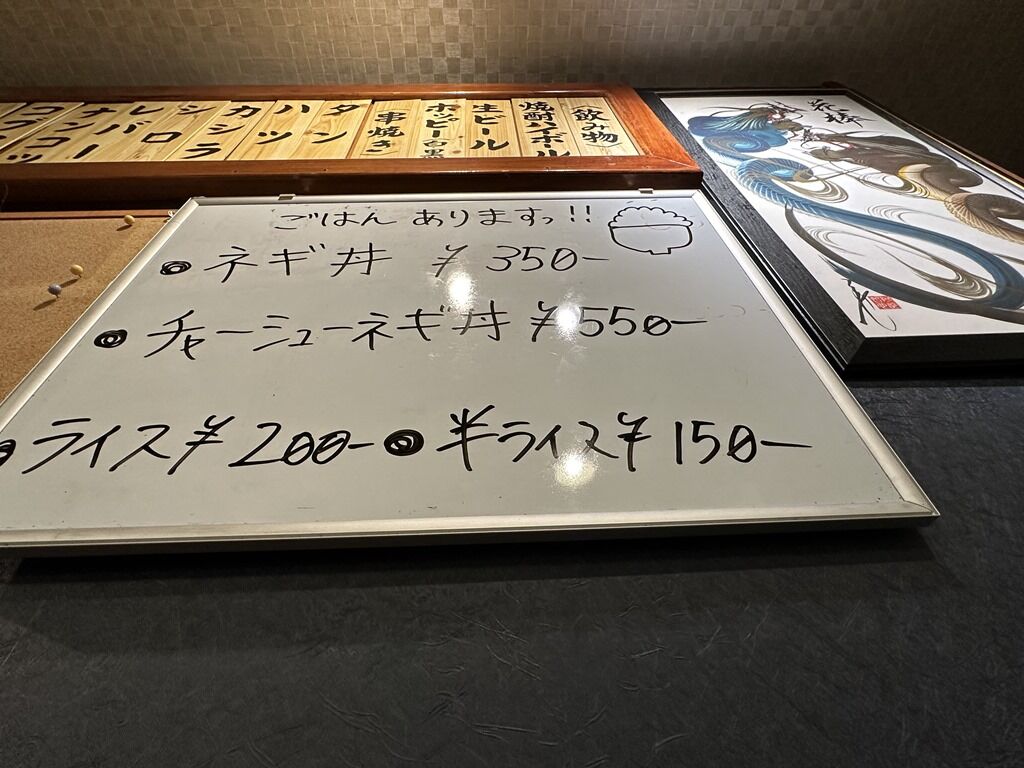 〈飲み物〉
焼酎ハイボール
生ビール
ホッピー白黒
串焼き
タン
ハツ
カシラ
シロ
レバー
ナンコツ
ごはん ありますっ!!
◎ネギ丼 ¥350-
◎チャーシューネギ丼 ¥550-
◎ライス¥200- ◎半ライス¥150-